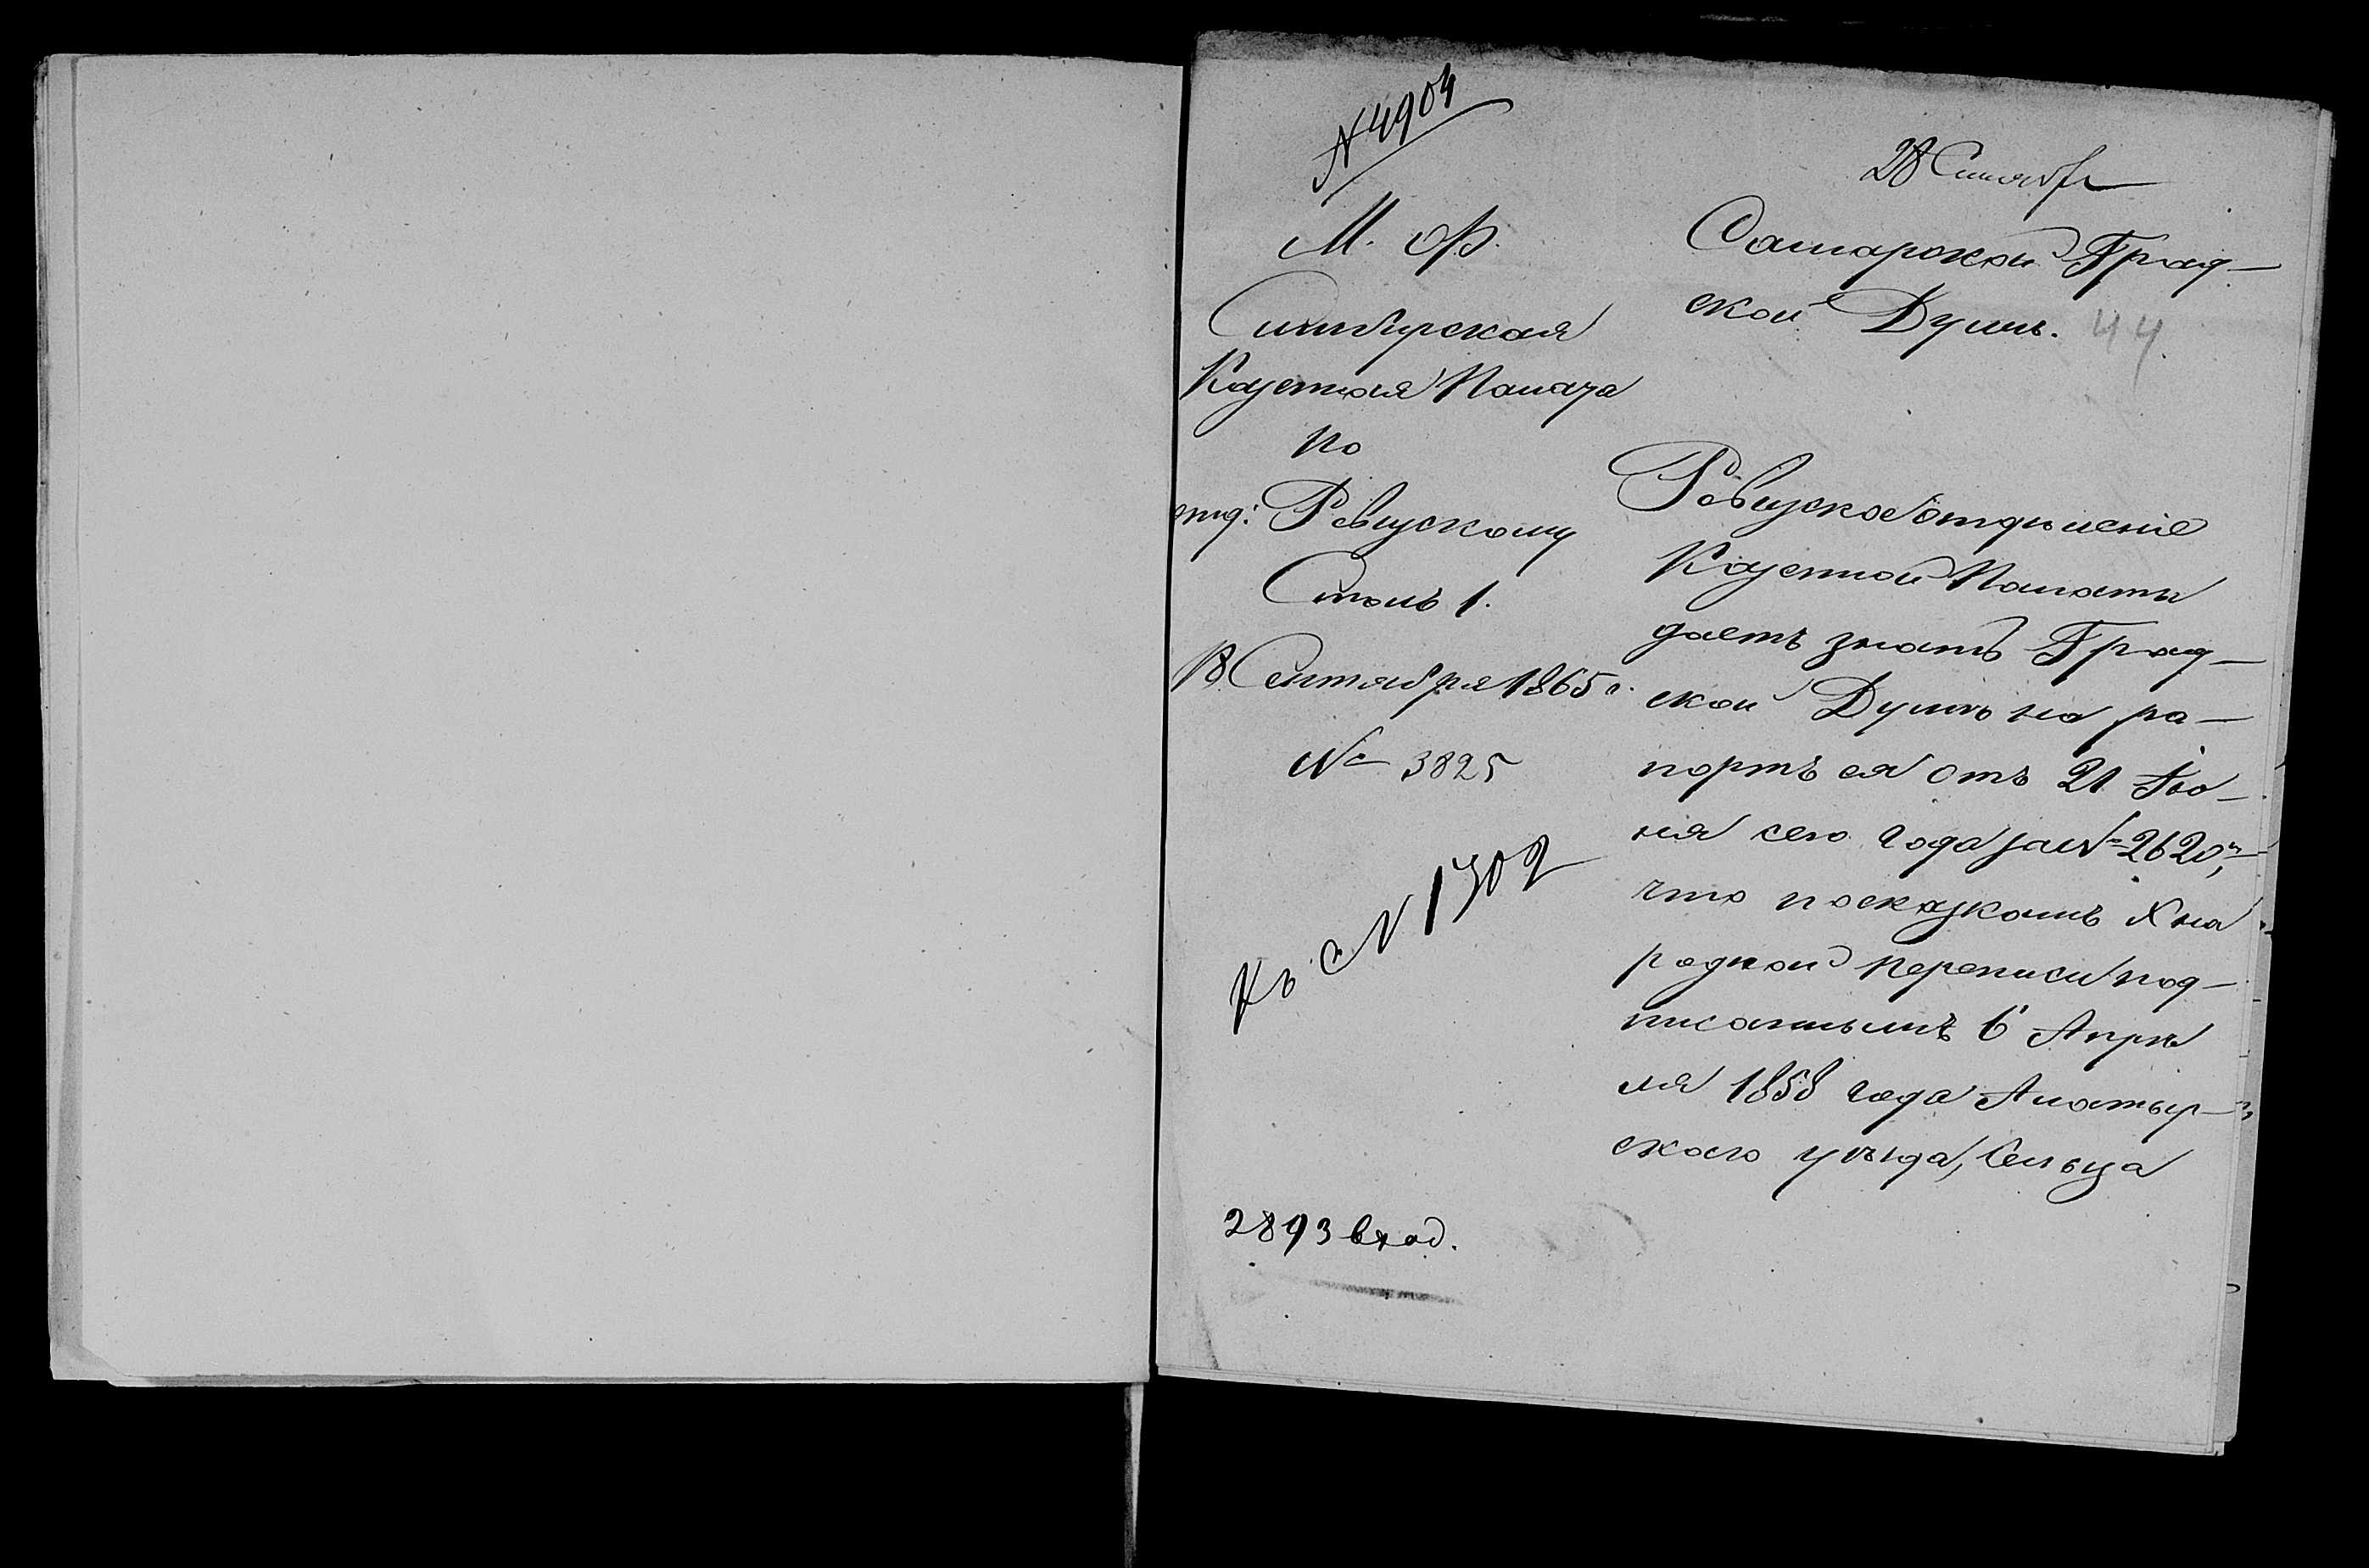 N 4904
М. Ф.
Симбирская
Казенная Палата
по
отд: Ревизскому
Столъ 1.
18 Сентября 1865 г.
№ 3825
Къ N 1302
2893 вход.
28 Сентября
Самарской Град-
ской Думѣ.
44
Ревизское отдѣленіе
Казенной Палаты
даетъ знать Град-
ской Думѣ на ра-
портъ ея отъ 21 Iю-
ня сего года за № 2620,
что по сказкамъ X на
родной переписи под-
писаннымъ 6 Апрѣ
ля 1858 года Алатыр-
скаго уѣзда, Сельца